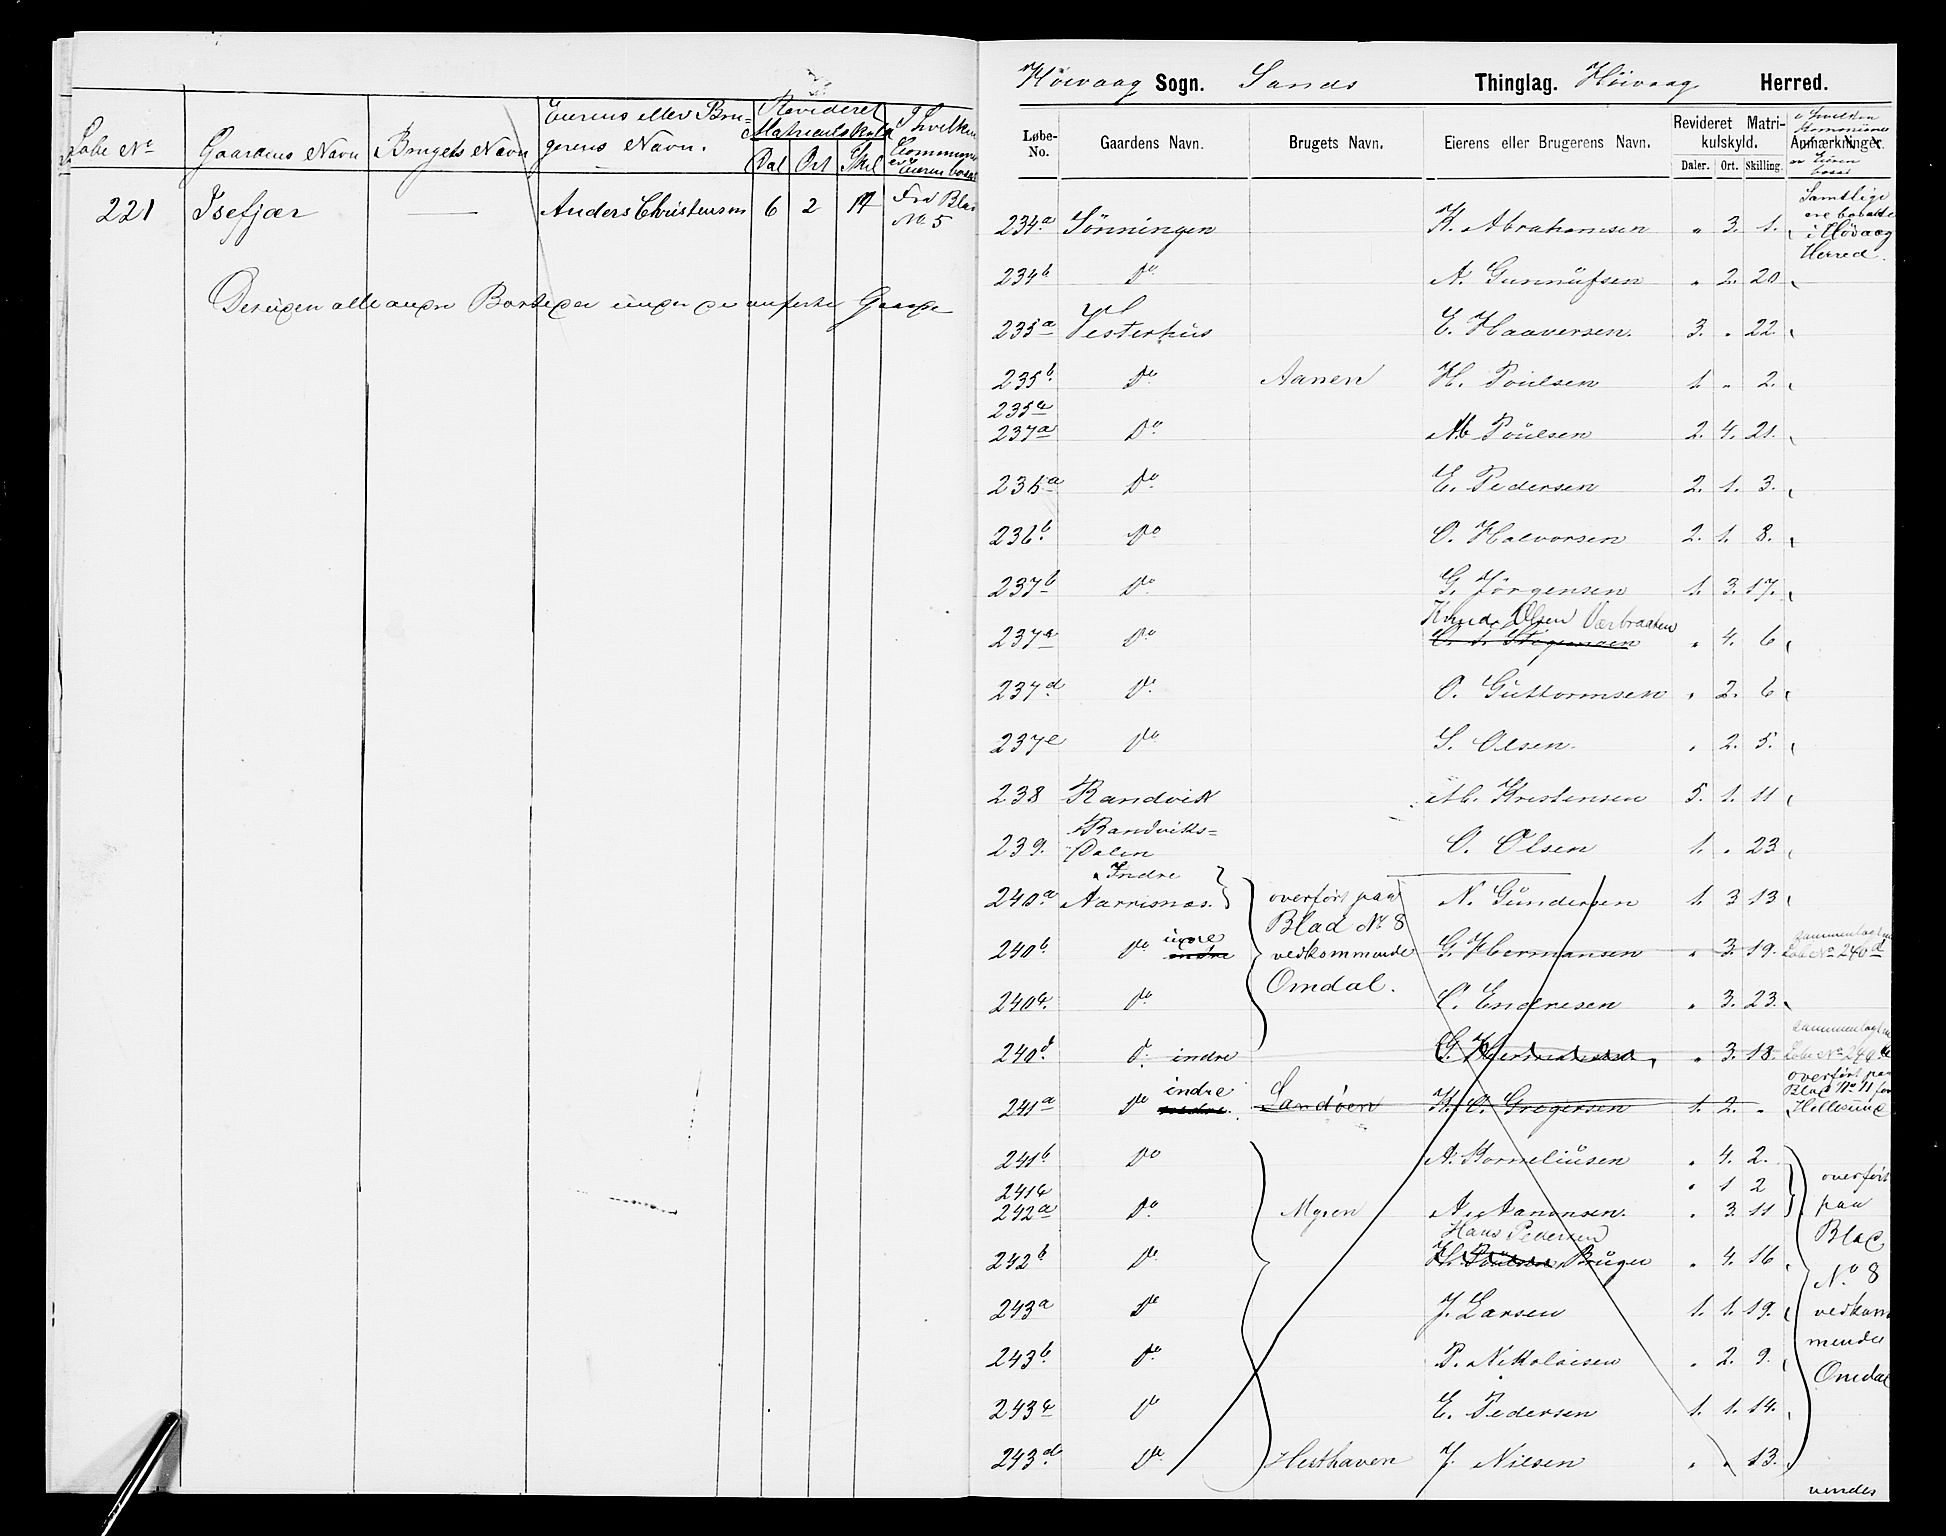 Løbe No Gaardens Navn Brugets Navn Eierens eller Bru-
gerens Navn. Revideret
Matriculskyld
Dal Ort Skil I hvilken
Commune
er Eieren bosat
221 Isefjær — Anders Christensen 6 2 17 Fra Blad
No 5
Desuden alle andre Bosteder under de anførte Gaarde
Høivaag Sogn. Sands Thinglag. Höivaag Herred.
Løbe-
No. Gaardens Navn. Brugets Navn. Eierens eller Brugerens Navn. Revideret Matri-
kulskyld.
Daler. Ort. Skilling. i hvilken
Kommune
Anmærkninger.
er Eieren
bosat
234a Sönningen K. Abrahamsen " 3. 1. Samtlige
ere bosatte
i Høvaag
Herred.
234b Do A. Gunnufsen " 2. 20
235a Vesterhus E. Haaversen. 3. " 22.
235b. Do Aanen H. Poulsen 1. " 2.
235c
237a Do M. Poulsen 2. 4. 21.
236a Do E. Pedersen 2. 1. 3.
236b. Do O. Halvorsen 2. 1. 8.
237b Do G. Jörgensen 1. 3. 17.
Knud Olsen Værbraaten
237c Do " 4. 6
237d Do O. Guttormsen " 2. 6
237e Do S. Olsen. " 2. 5.
238 Randvik M. Kristensen 5. 1. 11
239. Randviks=
Dalen O. Olsen 1. " 23
240a Indre
Aarrisnæs. N. Gundersen 1. 3 13
overført paa
Blad No 8
vedkommende
Omdal.
240b Do indre G. Hermansen " 3. 19. sammenlagt med
Løbe No 240d
240c. Do O. Endresen " 3. 23.
240d. Do indre G. Hermansen, " 3. 18. sammenlagt med
Løbe No 240b
241a Do indre Sandöen K. O. Gregersen 1. 2. " overført paa
Blad No 11 for
Hellesund
241b Do A. Korneliusen " 4. 2.
241c " 1 2
242a Do Myren A. Aanonsen. " 3. 11
Hans Pedersen
242b Do H. Poulsen, Bruger " 4. 16
243a Do J. Larsen 1. 1. 19.
243b. Do P. Nikolaisen " 2. 9.
243c Do E. Pedersen 1. 1. 14.
243d. Do Hesthaven J. Nilsen " " 13.
overført
paa
Blad
No 8
vedkom
mende
Omdal
vendes